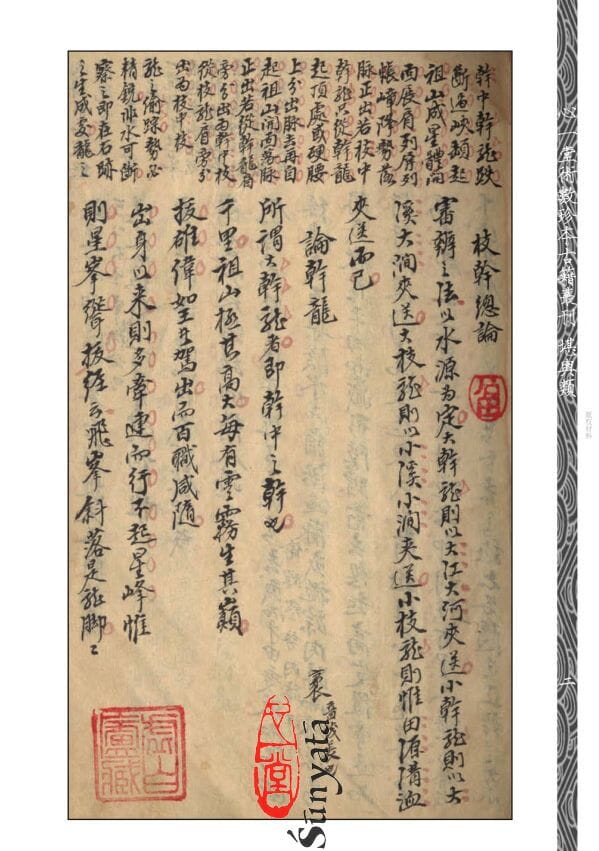 心一堂術數珍本古籍叢刊 堪輿類
二
幹中幹龍跌
斷過峽頓起
祖山成星體開
面展肩列屏列
帳嶂降勢落
脈正出若枝中
幹龍只從幹龍
起頂處或硬腰
上分出脈去再自
起祖山開面落脈
正出若從幹龍肩
旁分出為幹中枝
從枝龍肩旁分
出為枝中枝
龍之偷踪勢必
精銳非水可斷
察之即在石跡
之生成受龍之
枝幹總論
審辨之法以水源為定大幹龍則以大江大河夾送小幹龍則以大
溪大澗夾送大枝龍則以小溪小澗夾送小枝龍則惟田源溝洫
夾送而已
論幹龍
袤 音茂長也
所謂大幹龍者即幹中之幹也
千里祖山極其高大每有雲霧生其巔
雄偉如王者駕出而百職咸隨
出身以來則多牽連而行不起星峰惟
則星峯聳拔經云飛峯斜落是龍脚〻
虛白廬藏
心一堂
Śūnyatā